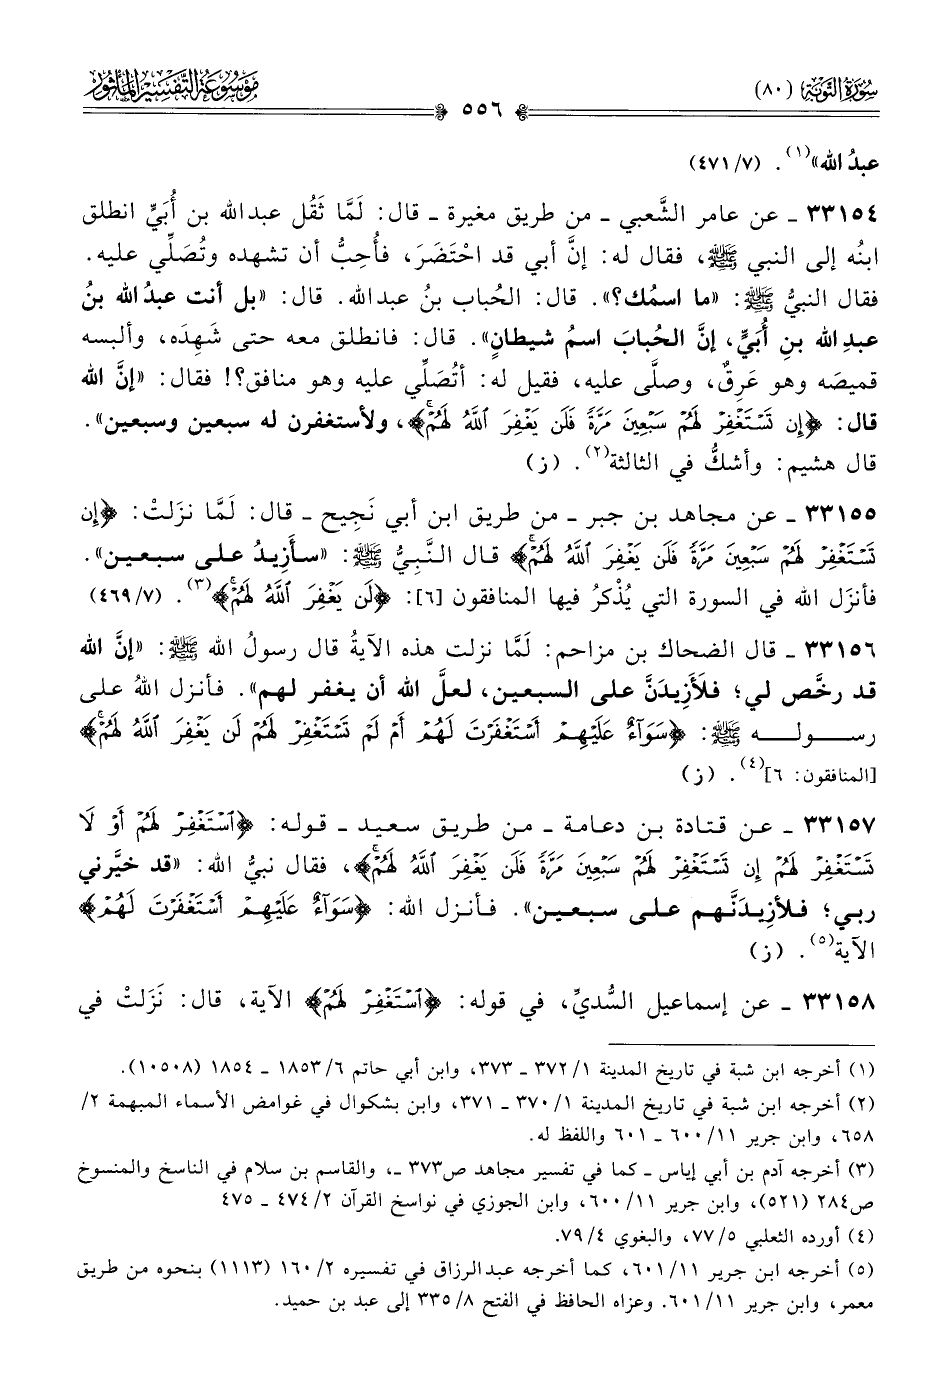 سُورَةُ التَّوْبَة (٨٠)
مَوْسُوعَة التَّفْسِيْر المَأْثُور
٥٥٦
عبدُ الله»(١). (٤٧١/٧)
٣٣١٥٤ ـ عن عامر الشَّعبي ـ من طريق مغيرة ـ قال: لَمَّا ثَقُل عبدالله بن أُبَيٍّ انطلق
ابنُه إلى النبي ﷺ، فقال له: إنَّ أبي قد احْتَضَر، فأُحِبُّ أن تشهده وتُصَلِّي عليه.
فقال النبيُّ ﷺ: «ما اسمُك؟». قال: الحُباب بنُ عبدالله. قال: «بل أنت عبدُ الله بنُ
عبدِ الله بنِ أُبَيٍّ، إنَّ الحُبابَ اسمُ شيطانٍ». قال: فانطلق معه حتى شَهِدَه، وألبسه
قميصَه وهو عَرِقٌ، وصلَّى عليه، فقيل له: أتُصَلِّي عليه وهو منافق؟! فقال: «إنَّ الله
قال: ﴿إِن تَسْتَغْفِرْ لَهُمْ سَبْعِينَ مَرَّةً فَلَن يَغْفِرَ ٱللَّهُ لَهُمْۚ﴾، ولأستغفرن له سبعين وسبعين».
قال هشيم: وأشكُّ في الثالثة(٢). (ز)
٣٣١٥٥ ـ عن مجاهد بن جبر ـ من طريق ابن أبي نَجِيح ـ قال: لَمَّا نزَلتْ: ﴿إِن
تَسْتَغْفِرْ لَهُمْ سَبْعِينَ مَرَّةً فَلَن يَغْفِرَ ٱللَّهُ لَهُمْۚ﴾ قال النَّبِيُّ ﷺ: «سأَزِيدُ على سبعين».
فأنزَل الله في السورة التي يُذْكرُ فيها المنافقون [٦]: ﴿لَن يَغْفِرَ ٱللَّهُ لَهُمْۚ﴾(٣). (٤٦٩/٧)
٣٣١٥٦ ـ قال الضحاك بن مزاحم: لَمَّا نزلت هذه الآيةُ قال رسولُ الله ﷺ: «إنَّ الله
قد رخَّص لي؛ فلَأَزِيدَنَّ على السبعين، لعلَّ الله أن يغفر لهم». فأنزل اللهُ على
رسوله ﷺ: ﴿سَوَآءٌ عَلَيْهِمْ أَسْتَغْفَرْتَ لَهُمْ أَمْ لَمْ تَسْتَغْفِرْ لَهُمْ لَن يَغْفِرَ ٱللَّهُ لَهُمْۚ﴾
[المنافقون: ٦](٤). (ز)
٣٣١٥٧ ـ عن قتادة بن دعامة ـ من طريق سعيد ـ قوله: ﴿ٱسْتَغْفِرْ لَهُمْ أَوْ لَا
تَسْتَغْفِرْ لَهُمْ إِن تَسْتَغْفِرْ لَهُمْ سَبْعِينَ مَرَّةً فَلَن يَغْفِرَ ٱللَّهُ لَهُمْۚ﴾، فقال نبيُّ الله: «قد خيَّرني
ربي؛ فلأزيدَنَّهم على سبعين». فأنزل الله: ﴿سَوَآءٌ عَلَيْهِمْ أَسْتَغْفَرْتَ لَهُمْ﴾
الآية(٥). (ز)
٣٣١٥٨ ـ عن إسماعيل السُّديِّ، في قوله: ﴿ٱسْتَغْفِرْ لَهُمْ﴾ الآية، قال: نَزَلتْ في
(١) أخرجه ابن شبة في تاريخ المدينة ٣٧٢/١ ـ ٣٧٣، وابن أبي حاتم ١٨٥٣/٦ ـ ١٨٥٤ (١٠٥٠٨).
(٢) أخرجه ابن شبة في تاريخ المدينة ٣٧٠/١ ـ ٣٧١، وابن بشكوال في غوامض الأسماء المبهمة ٢/
٦٥٨، وابن جرير ٦٠٠/١١ ـ ٦٠١ واللفظ له.
(٣) أخرجه آدم بن أبي إياس ـ كما في تفسير مجاهد ص٣٧٣ ـ، والقاسم بن سلام في الناسخ والمنسوخ
ص٢٨٤ (٥٢١)، وابن جرير ٦٠٠/١١، وابن الجوزي في نواسخ القرآن ٤٧٤/٢ ـ ٤٧٥
(٤) أورده الثعلبي ٧٧/٥، والبغوي ٧٩/٤.
(٥) أخرجه ابن جرير ٦٠١/١١، كما أخرجه عبدالرزاق في تفسيره ١٦٠/٢ (١١١٣) بنحوه من طريق
معمر، وابن جرير ٦٠١/١١. وعزاه الحافظ في الفتح ٣٣٥/٨ إلى عبد بن حميد.